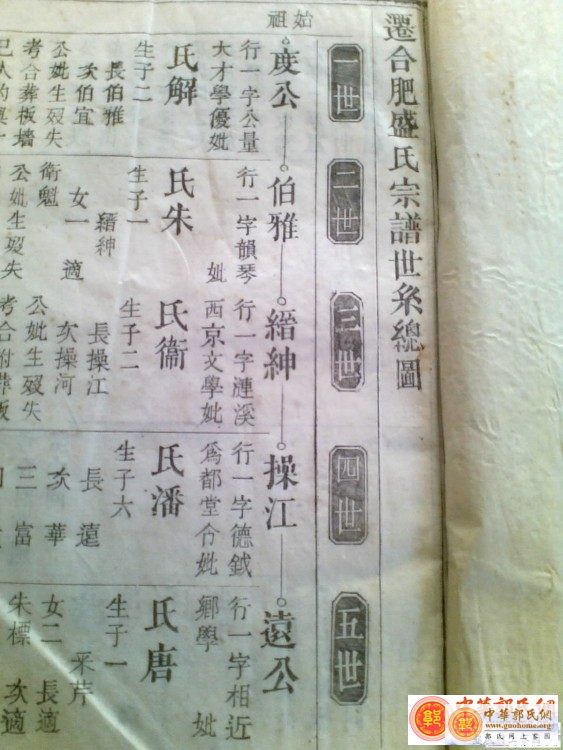 遷合肥盛氏宗譜世系總圖
一世
二世
三世
四世
五世
始祖
度公
行一字公量
大才學優妣
氏解
生子二
長伯雅
次伯宜
公妣生歿失
考合葬板墻
伯雅
行一字韻琴
妣
氏朱
生子一
縉紳
女一適
衛魁
公妣生歿失
縉紳
行一字漣溪
西京文學妣
氏衞
生子二
長操江
次操河
公妣生歿失
考合附葬板
操江
行一字德鉞
爲都堂令妣
氏潘
生子六
長遠
次華
三富
遠公
行一字相近
鄉學妣
氏唐
生子一
采芹
女二長適
朱標次適
中華郭氏網
中華郭氏網
www.guohome.org
郭氏网上家园